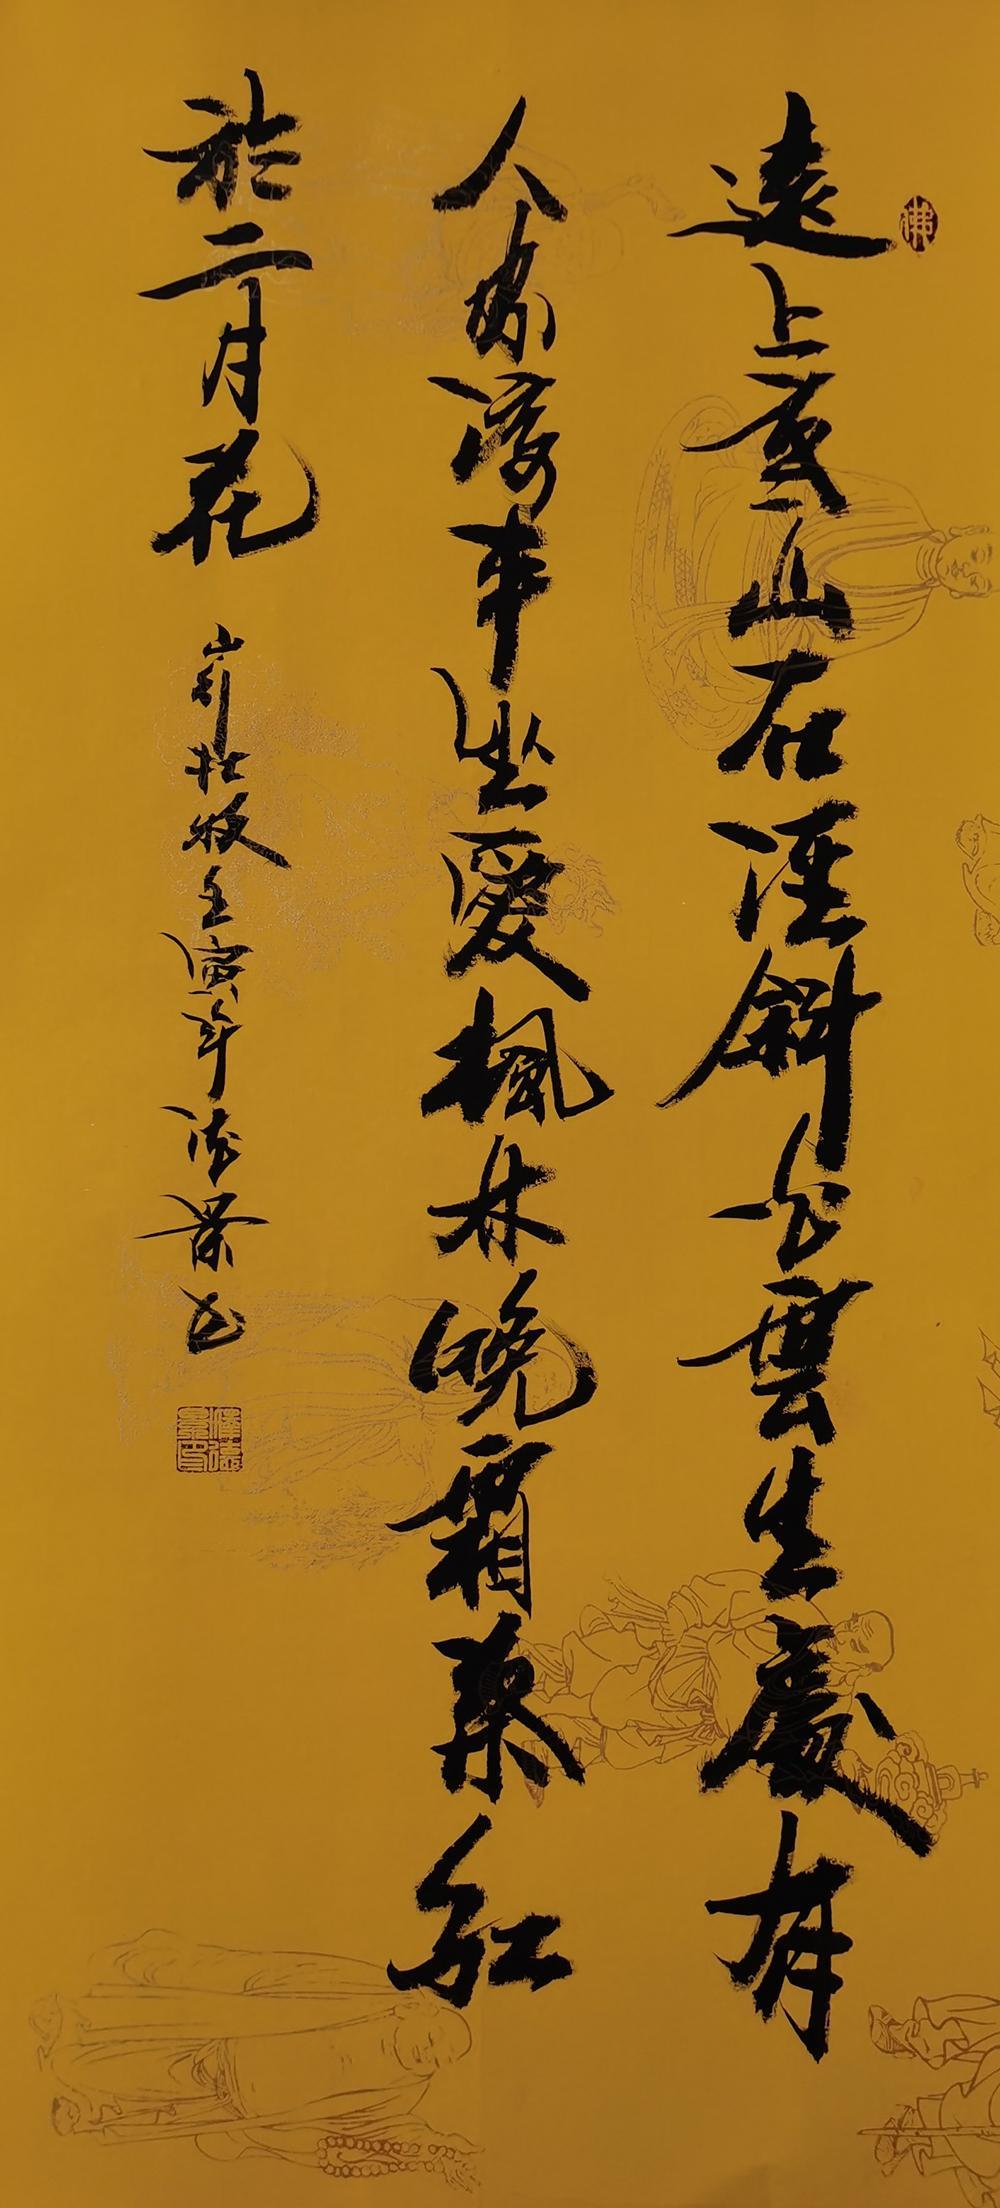 佛
遠上寒山石徑斜白雲生處有
人家停車坐愛楓林晚霜葉紅
於二月花 山行杜牧壬寅年德景书